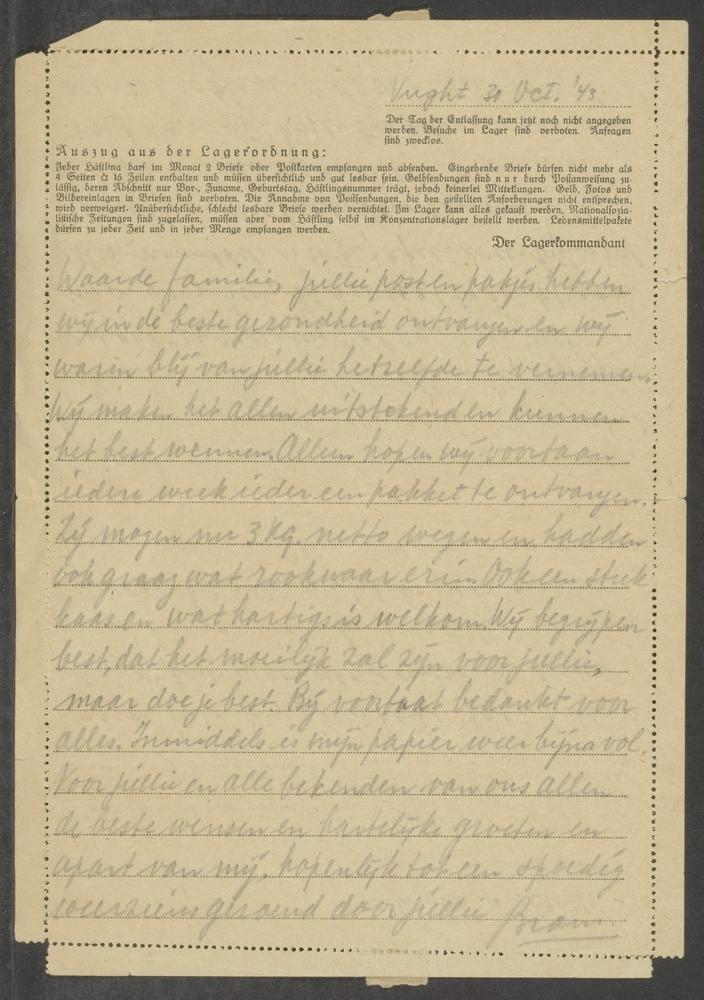 Vught 30 Oct. '43
Der Tag der Entlassung kann jetzt noch nicht angegeben
werden. Besuche im Lager sind verboten. Anfragen
sind zwecklos.
Auszug aus der Lagerordnung:
Jeder Häftling darf im Monat 2 Briefe oder Postkarten empfangen und absenden. Eingehende Briefe dürfen nicht mehr als
4 Seiten à 15 Zeilen enthalten und müssen übersichtlich und gut lesbar sein. Geldsendungen sind nur durch Postanweisung zu-
lässig, deren Abschnitt nur Vor-, Zuname, Geburtstag, Häftlingsnummer trägt, jedoch keinerlei Mitteilungen. Geld, Fotos und
Bildereinlagen in Briefen sind verboten. Die Annahme von Postsendungen, die den gestellten Anforderungen nicht entsprechen,
wird verweigert. Unübersichtliche, schlecht lesbare Briefe werden vernichtet. Im Lager kann alles gekauft werden. Nationalsozia-
listische Zeitungen sind zugelassen, müssen aber vom Häftling selbst im Konzentrationslager bestellt werden. Lebensmittelpakete
dürfen zu jeder Zeit und in jeder Menge empfangen werden.
Der Lagerkommandant
Waarde familie, jullie post en pakjes hebben
wij in de beste gezondheid ontvangen en wij
waren blij van jullie hetzelfde te vernemen.
Wij maken het allen uitstekend en kunnen
het best wennen. Alleen hopen wij voortaan
iedere week ieder een pakket te ontvangen.
Zij mogen nu 3 Kg. netto wegen en hadden
ook graag wat rookwaar erin. Ook een stuk
kaas en wat hartigs is welkom. Wij begrijpen
best, dat het moeilijk zal zijn voor jullie,
maar doe je best. Bij voorbaat bedankt voor
alles. Inmiddels is mijn papier weer bijna vol.
Voor jullie en alle bekenden van ons allen
de beste wensen en hartelijke groeten en
apart van mij, hopenlijk tot een spoedig
weerziens gezoend door jullie Bram